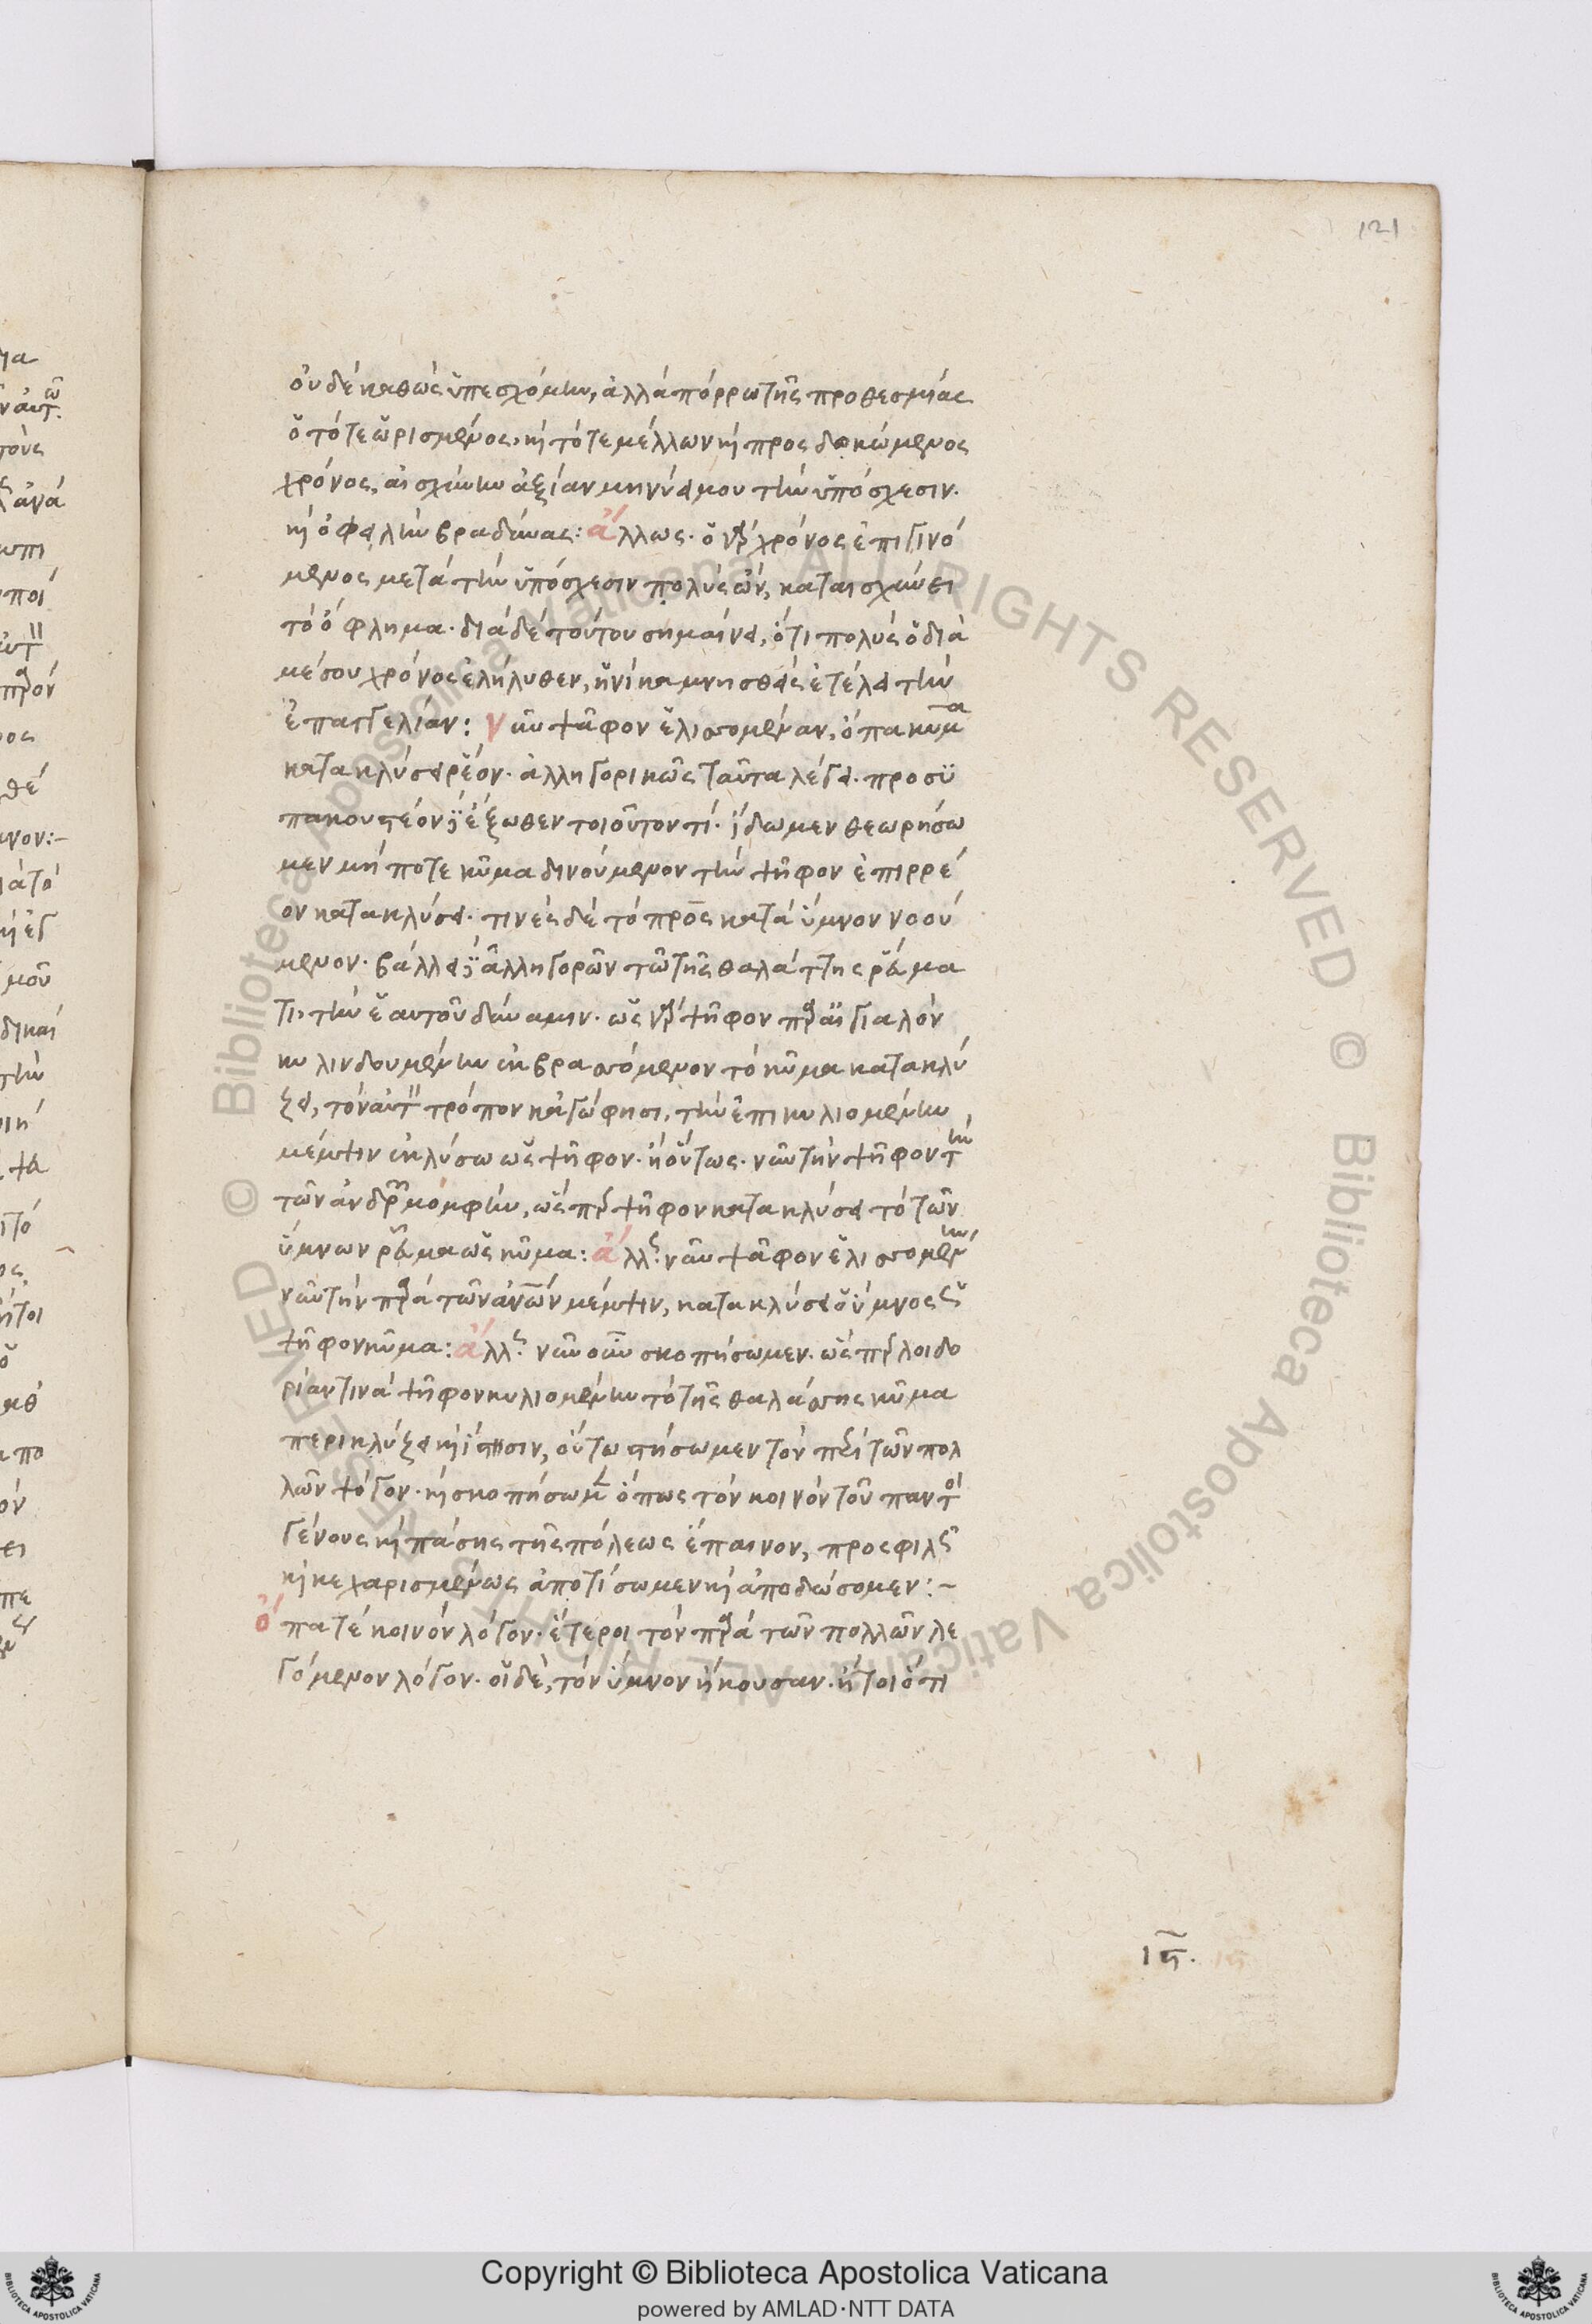 121
οὐδὲ καθὼς ὑπεσχόμην, ἀλλὰ πόρρω τῆς προθεσμίας
ὁ τότε ὡρισμένος, καὶ τότε μέλλων καὶ προσδοκώμενος
χρόνος, αἰσχύνην ἀξίαν μηνύει μου τὴν ὑπόσχεσιν.
καὶ ὀφείλην βραδύνας: ἄλλως. ὁ γὰρ χρόνος ἐπιγινό
μενος μετὰ τὴν ὑπόσχεσιν πολὺς ὢν, καταισχύνει
τὸ ὄφλημα. διὰ δὲ τούτου σημαίνει, ὅτι πολὺς ὁ διὰ
μέσου χρόνος ἐλήλυθεν, ἡνίκα μνησθεὶς ἐτέλει τὴν
ἐπαγγελίαν: νῦν ψᾶφον ἑλισσομέναν, ὅπα κῦμα
κατακλύσει ῥέον. ἀλληγορικῶς ταῦτα λέγει. προσυ
πακουστέον δὲ ἔξωθεν τοιοῦτόν τι. ἴδωμεν θεωρήσω
μεν μή ποτε κῦμα δινούμενον τὴν ψῆφον ἐπιρρέ
ον κατακλύσει. τινὲς δὲ τὸ πρὸς κατὰ ὕμνον νοού
μενον. βάλλει δὲ ἀλληγορῶν τῷ τῆς θαλάττης ῥεύμα
τι, τὴν ἑαυτοῦ δύναμιν. ὡς γὰρ ψῆφον παρ' αἰγιαλὸν
κυλινδουμένην ἐκβρασσόμενον τὸ κῦμα κατακλύ
ζει, τὸν αὐτὸν τρόπον κἀγώ φησι, τὴν ἐπικυλιομένην
μέμψιν ἐκλύσω ὡς ψῆφον. ἢ οὕτως. νῦν τὴν ψῆφον τὴν
τῶν ἀνδρῶν μομφὴν, ὥσπερ ψῆφον κατακλύσει τὸ τῶν
ὕμνων ῥεῦμα ὡς κῦμα: ἄλλως. νῦν ψᾶφον ἑλισσομένην
νῦν τὴν παρὰ τῶν ἀνθρώπων μέμψιν, κατακλύσει ὁ ὕμνος ὡς
ψῆφον κῦμα: ἄλλως. νῦν οὖν σκοπήσωμεν. ὥσπερ λοιδο
ρίαν τινὰ ψῆφον κυλιομένην τὸ τῆς θαλάσσης κῦμα
περικλύζει καὶ ἵστησιν, οὕτω στήσωμεν τὸν περὶ τῶν πολ
λῶν ψόγον. καὶ σκοπήσωμεν ὅπως τὸν κοινὸν τοῦ παντὸς
γένους καὶ πάσης τῆς πόλεως ἔπαινον, προσφιλῶς
καὶ κεχαρισμένως ἀποτίσωμεν καὶ ἀποδώσομεν:~
ὅπα τε κοινὸν λόγον. ἕτεροι τὸν παρὰ τῶν πολλῶν λε
γόμενον λόγον. οἱ δὲ, τὸν ὕμνον ἤκουσαν. ἤτοι ὅτι
ιϛ.
Copyright © Biblioteca Apostolica Vaticana
powered by AMLAD·NTT DATA